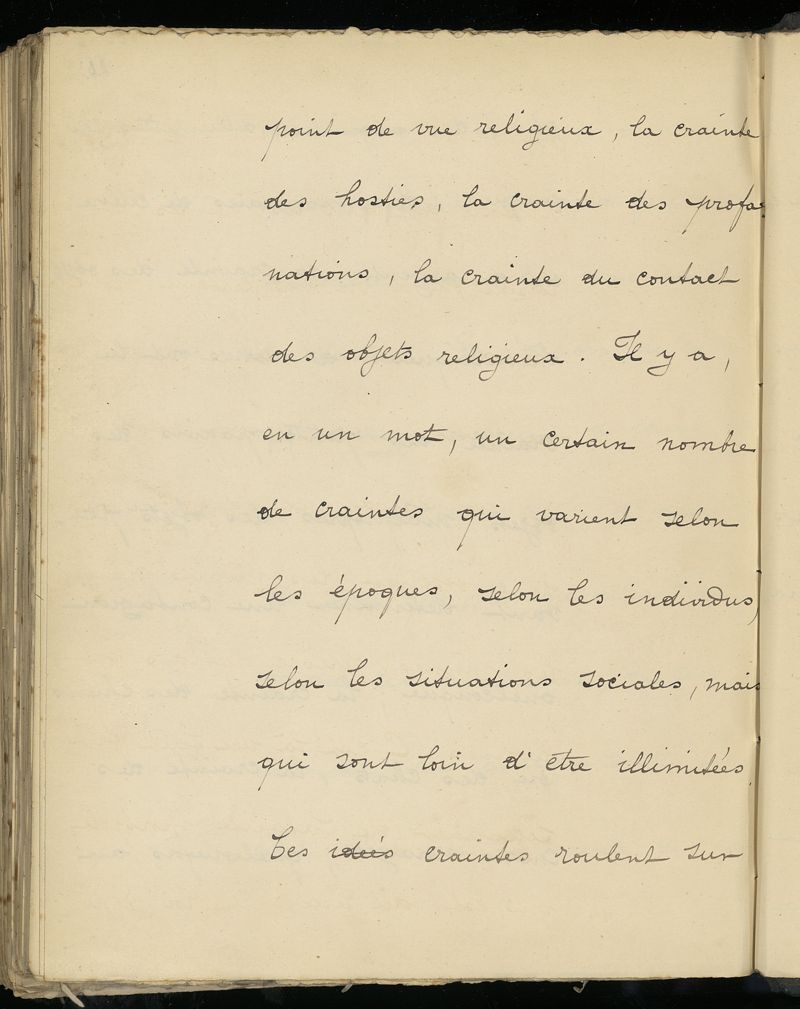 point de vue religieux, la crainte
des hosties, la crainte des profa-
nations, la crainte du contact
des objets religieux. Il y a,
en un mot, un certain nombre
de craintes qui varient selon
les époques, selon les individus,
selon les situations sociales, mais
qui sont loin d'être illimitées.
Ces idées craintes roulent sur